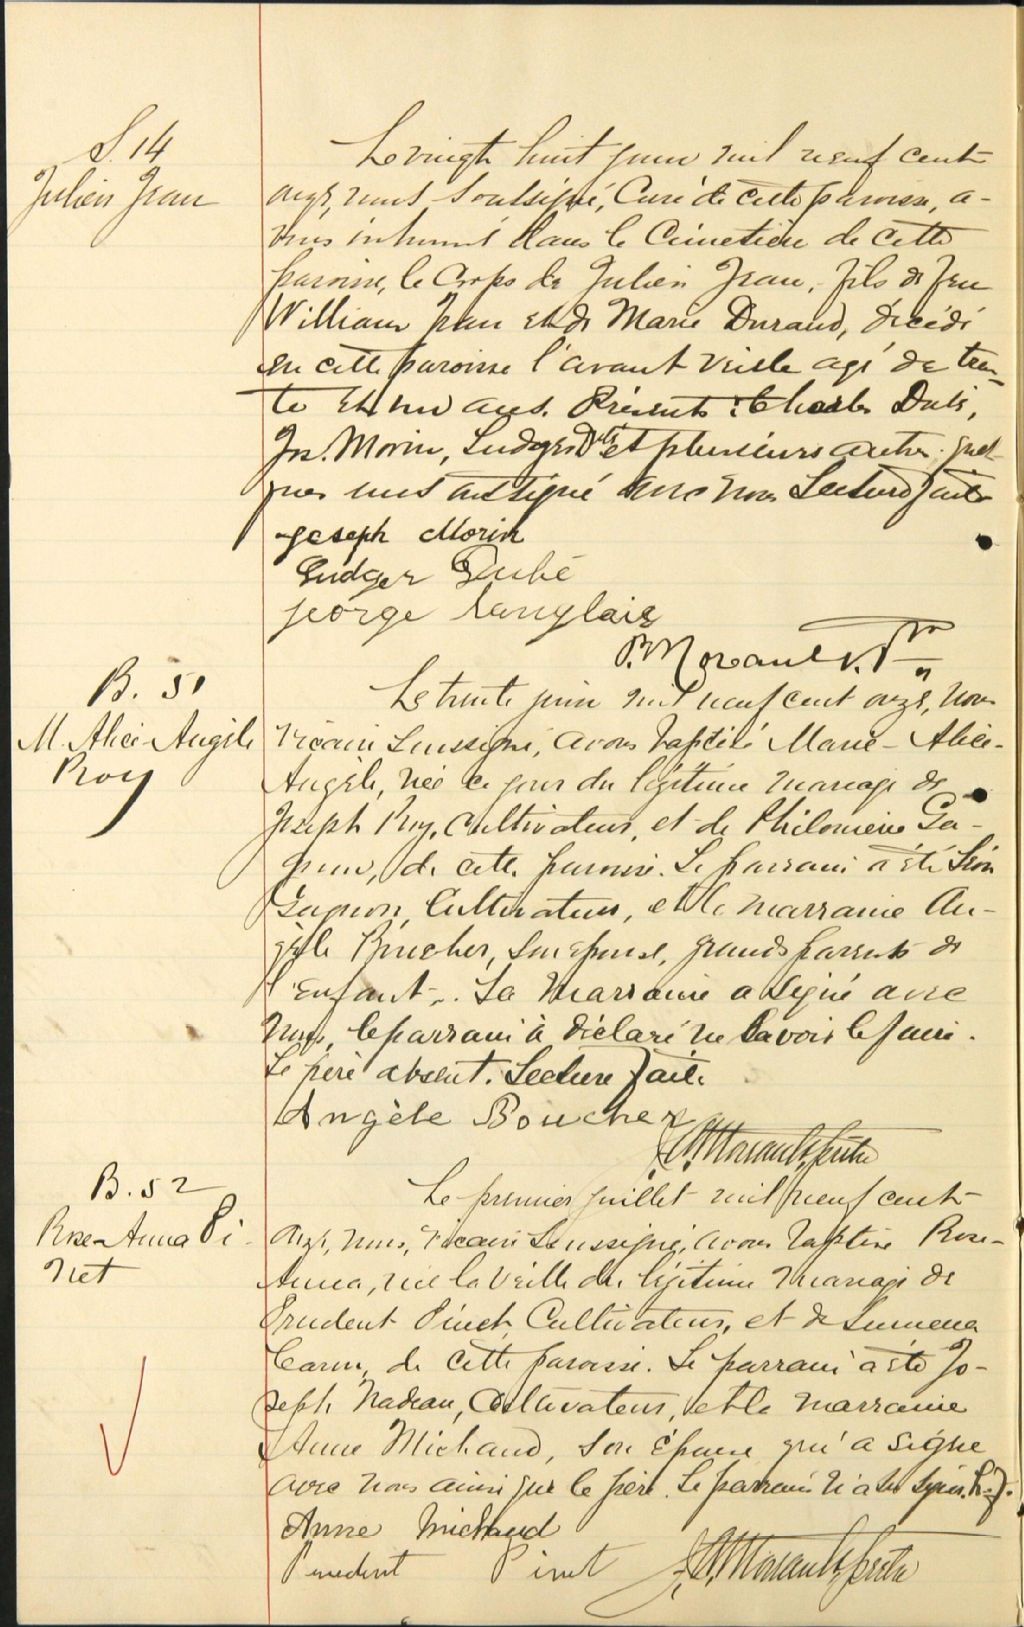 S. 14
Julien Jean
Le vingt huit juin mil neuf cent
onze, nous soussigné, Curé de cette paroisse, a-
vons inhumé dans le Cimetière de cette
paroisse, le Corps de Julien Jean, fils de feu
William Jean et de Marie Durand, décédé
en cette paroisse l'avant veille agé de tren-
te et un ans. Présents: Charles Dubé,
Jos. Morin, Ludger Dubé et plusieurs autres. quel-
ques uns ont signé avec nous Lecture faite
Joseph Morin
Ludger Dubé
George Langlais
P. Morault. Ptre
B. 51
M. Alice Angèle
Roy
Le trente juin mil neuf cent onze, nous
Vicaire Soussigné, avons baptisé Marie-Alice-
Angèle, née ce jour du légitime mariage de
Joseph Roy, Cultivateur, et de Philomène Ga-
gnon, de cette paroisse. Le parrain a été Léon
Gagnon, Cultivateur, et la marraine An-
gèle Boucher, son épouse, grands parents de
l'enfant. La Marraine a signé avec
nous, le parrain a déclaré ne savoir le faire.
Le père absent. Lecture faite.
Angèle Boucher
Morault, ptre
B. 52
Rose-Anna Pi-
net
Le premier juillet mil neuf cent
onze, nous, Vicaire Soussigné, avons baptisé Rose-
Anna, née la veille du légitime mariage de
Prudent Pinet, Cultivateur, et de
Caron, de cette paroisse. Le parrain a été Jo-
seph Nadeau, Cultivateur, et la marraine
Anne Michaud, son épouse qui a signé
avec nous ainsi que le père. Le parrain n'a su signer. L. f.
Anne Michaud
Prudent Pinet
Morault, ptre